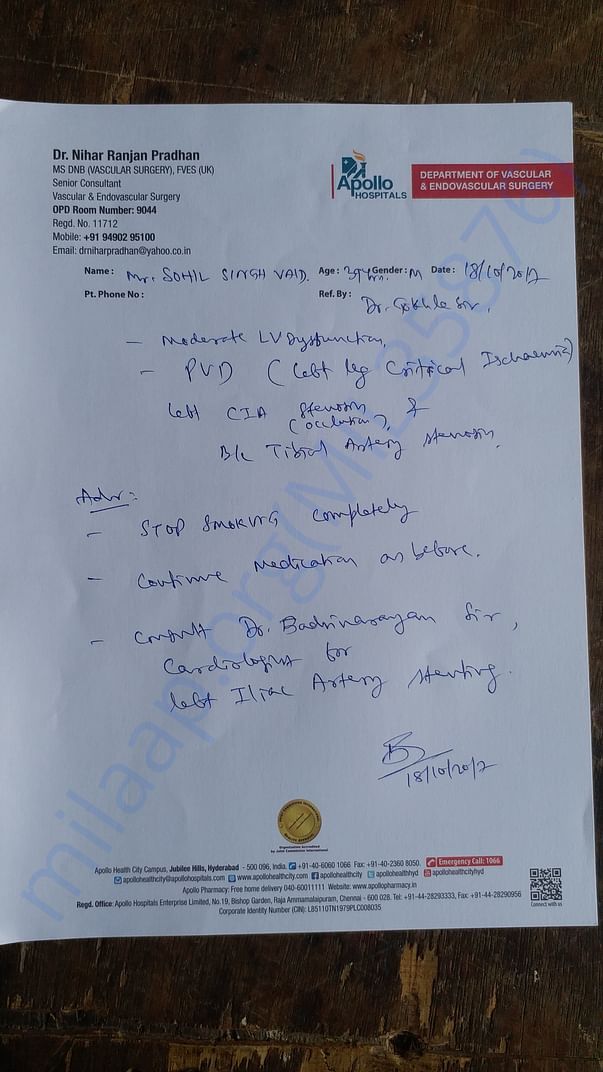 Dr. Nihar Ranjan Pradhan
MS DNB (VASCULAR SURGERY), FVES (UK)
Senior Consultant
Vascular & Endovascular Surgery
OPD Room Number: 9044
Regd. No. 11712
Mobile: +91 94902 95100
Email: drniharpradhan@yahoo.co.in
Apollo
HOSPITALS
DEPARTMENT OF VASCULAR
& ENDOVASCULAR SURGERY
Name: Mr. SOHIL SINGH VAID. Age: Gender: M Date: 18/10/2017
Pt. Phone No: Ref. By: Dr. Gokhle Sir,
- Moderate LV Dysfunction,
- PVD (left leg Critical Ischaemia)
left CIA stenosis &
(occlusion),
B/L Tibial Artery stenosis,
Adv:-
- STOP SMOKING completely
- Continue Medication as before.
- Consult Dr. Badrinarayan Sir,
Cardiologist for
left Iliac Artery stenting.
18/10/2017
Organization Accredited
by Joint Commission International
Apollo Health City Campus, Jubilee Hills, Hyderabad - 500 096, India. +91-40-6060 1066 Fax: +91-40-2360 8050. Emergency Call: 1066
apollohealthcity@apollohospitals.com www.apollohealthcity.com apollohealthcity apollohealthhyd apollohealthcityhyd
Apollo Pharmacy: Free home delivery 040-60011111 Website: www.apollopharmacy.in
Regd. Office: Apollo Hospitals Enterprise Limited, No.19, Bishop Garden, Raja Annamalaipuram, Chennai - 600 028. Tel: +91-44-28293333, Fax: +91-44-28290956
Corporate Identity Number (CIN): L85110TN1979PLC008035
Connect with us